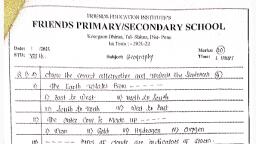 FRIENDS EDUCATION INSTITUTE'S
FRIENDS PRIMARY/SECONDARY SCHOOL
Koregaon Bhima, Tal- Shirur, Dist- Pune
Ist Term :- 2021-22
Date: / /2021 Marks: 40
STD: VIII th Subject: Geography Time: 1 HOUR
Q.1) chose the correct alternative and rewrite the sentences
i) The Earth rotates from -----
i) East to West ii) North to South
iii) South to North iv) West to East
ii) The outer Core is made up -----
i) Iron ii) Gold iii) Hydrogen iv) Oxygen
types of rocks are indicators of